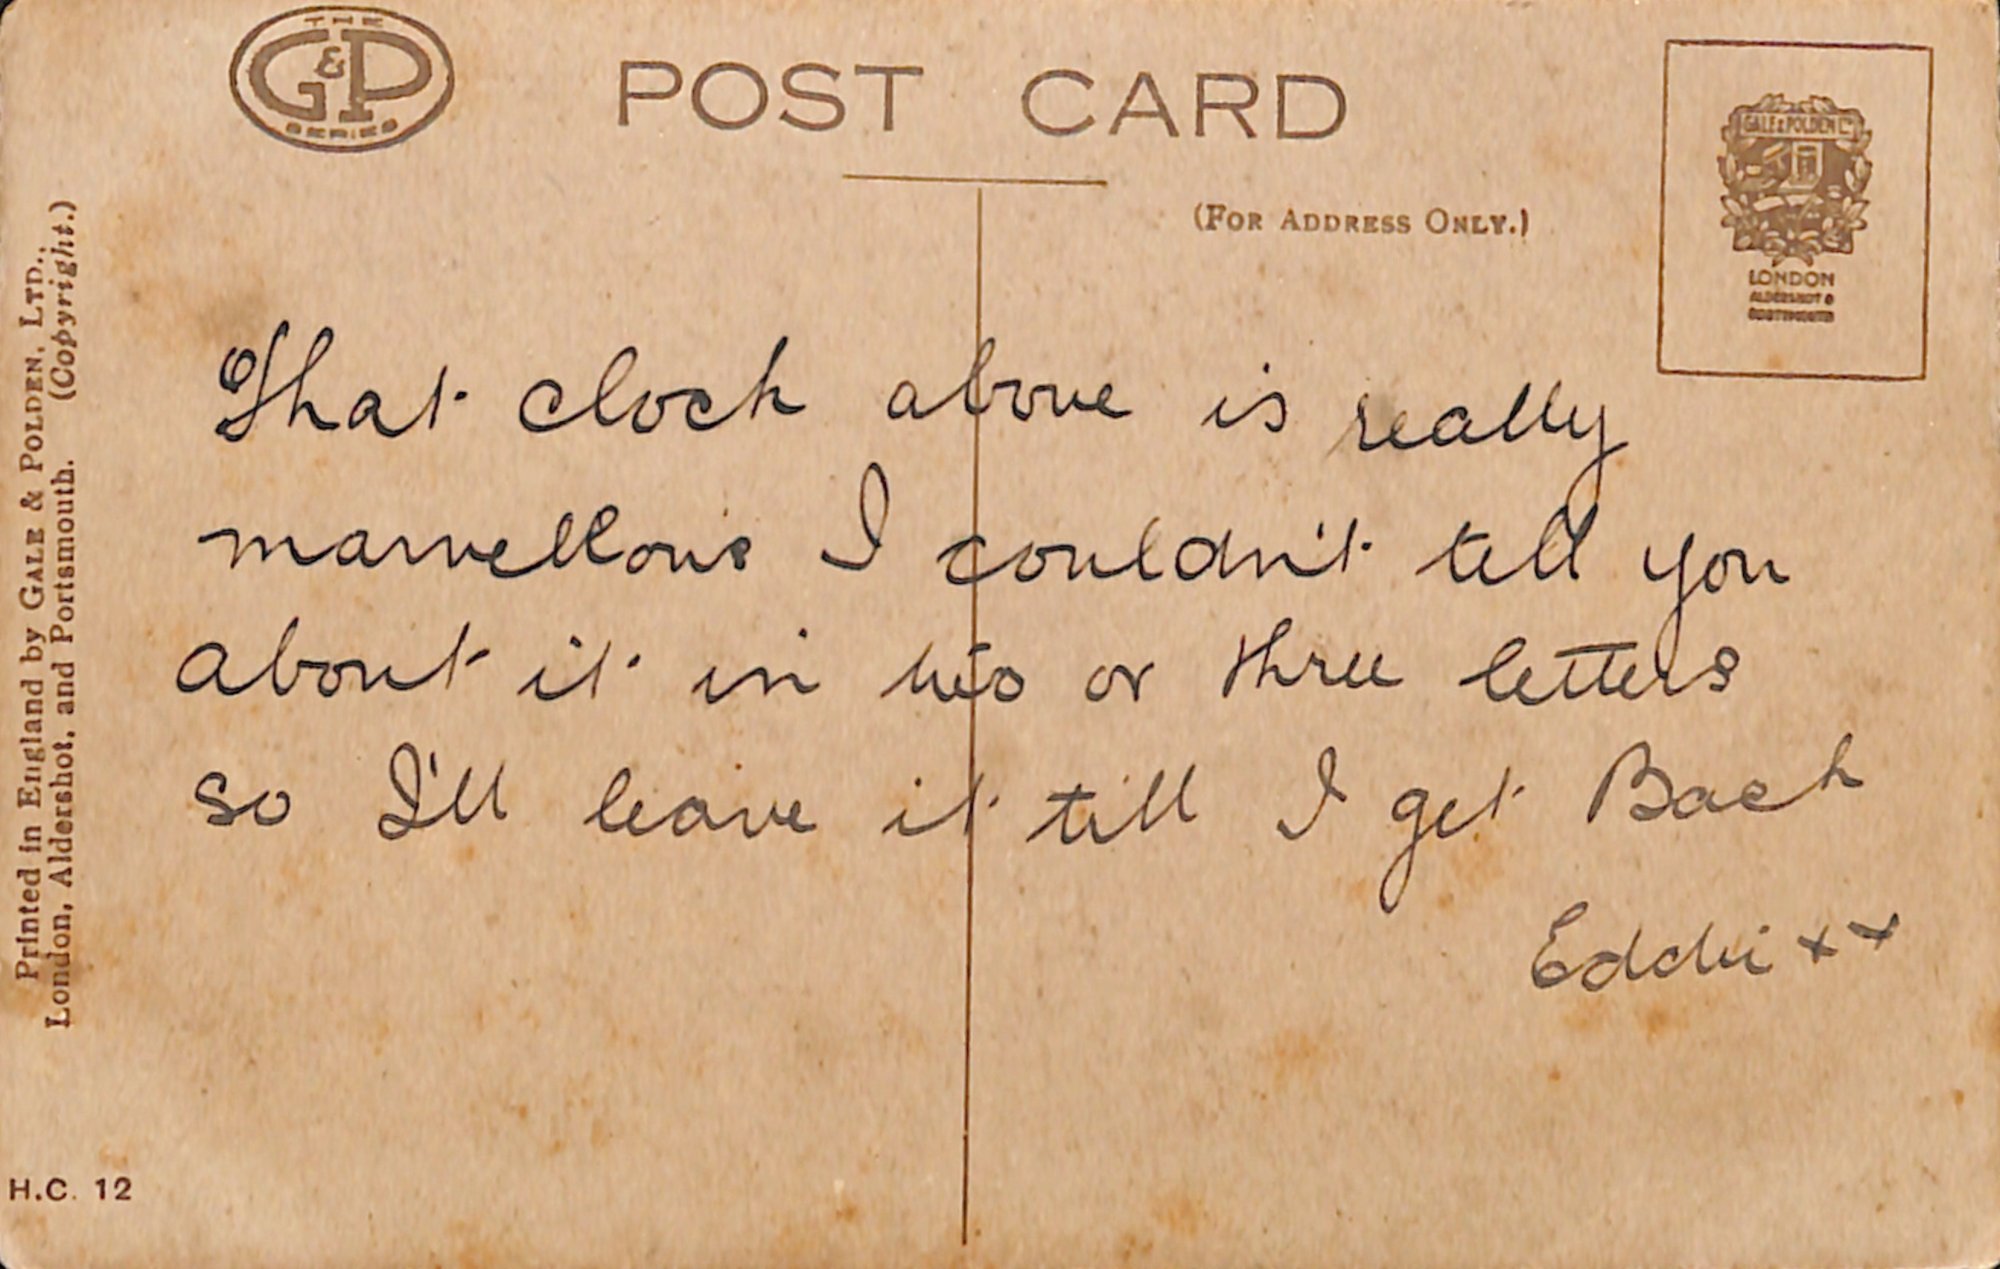 THE
G&P
SERIES
POST CARD
(FOR ADDRESS ONLY.)
GALE & POLDEN LTD
LONDON
ALDERSHOT &
PORTSMOUTH
Printed in England by GALE & POLDEN, LTD.,
London, Aldershot, and Portsmouth. (Copyright.)
That clock above is really
marvellous I couldn't tell you
about it in two or three letters
so I'll leave it till I get Back
Eddie xx
H.C. 12